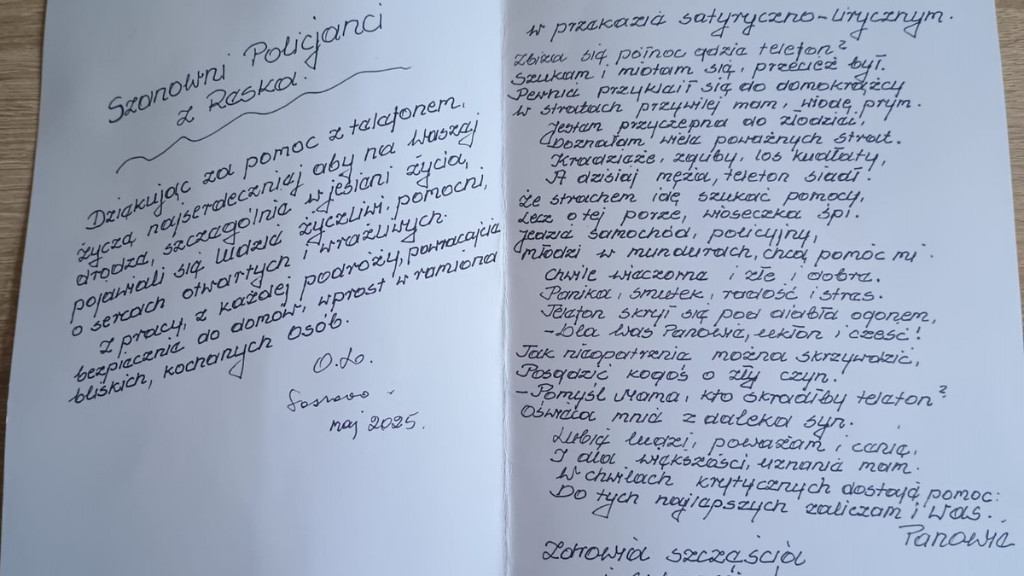 Szanowni Policjanci
z Reska.
Dziękując za pomoc z telefonem,
życzę najserdeczniej aby na Waszej
drodze, szczególnie w jesieni życia,
pojawiali się ludzie życzliwi, pomocni,
o sercach otwartych i wrażliwych.
Z pracy, z każdej podróży, powracajcie
bezpiecznie do domów, wprost w ramiona
bliskich, kochanych osób.
O.Lo.
maj 2025.
w przekazie satyryczno-lirycznym.
Zbiża się północ gdzie telefon?
Szukam i miotam się, przecież był.
Pewnie przykleił się do domokrążcy
w stratach przywilej mam, wiodę prym.
Jestem przyczepna do złodziei!
Doznałam wiele poważnych strat.
Kradzieże, zguby, los kudłaty,
A dzisiaj męża, telefon siadł!
Ze strachem idę szukać pomocy,
Lecz o tej porze, wioseczka śpi.
Jedzie samochód, policyjny,
młodzi w mundurach, chcą pomóc mi.
Chwile wieczorne i złe i dobre.
Panika, smutek, radość i stres.
Telefon skrył się pod diabła ogonem,
- Dla Was Panowie, ukłon i cześć!
Jak nieopatrznie można skrzywdzić,
Posądzić kogoś o zły czyn.
- Pomyśl Mama, kto skradłby telefon?
Oświeca mnie z daleka syn.
Lubię ludzi, poważam i cenię,
I dla większości, uznanie mam.
W chwilach krytycznych dostaję pomoc:
Do tych najlepszych zaliczam i Was..
Panowie
Zdrowia szczęścia